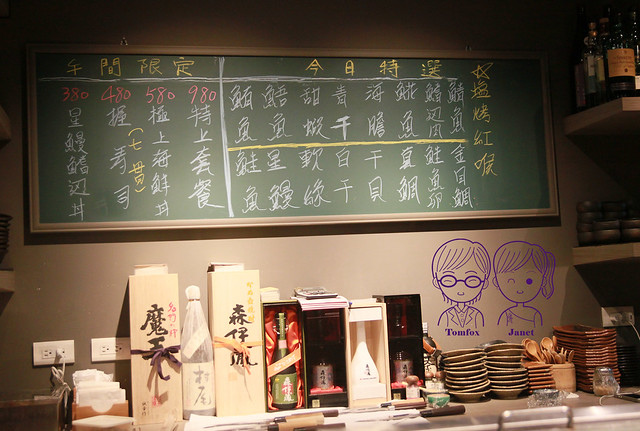 午間限定
980 特上套餐
580 極上海鮮丼
480 握壽司(七貫)
380 星鰻鱔辺丼
今日特選
☆塩烤紅喉
鯖魚
鱔辺肉
魽魚
海膽
青干
甜蝦
鮪魚
金目鯛
鮭魚卵
真鯛
干貝
白干
軟絲
星鰻
鮭魚
魔王
村尾
森伊蔵
Tomfox
Janet